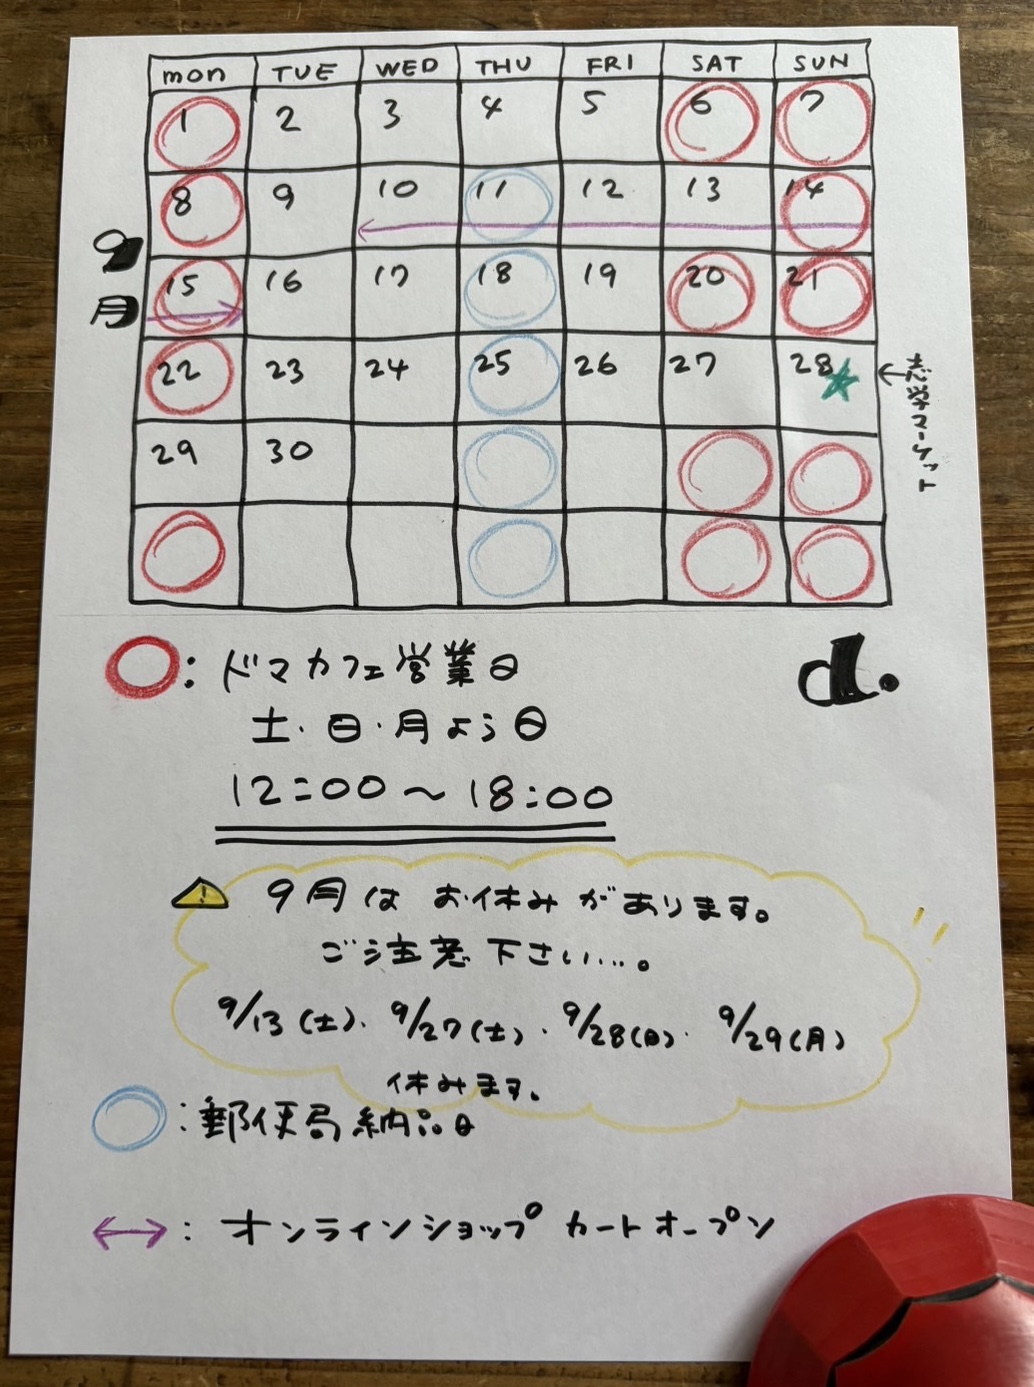 mon TUE WED THU FRI SAT SUN
1 2 3 4 5 6 7
8 9 10 11 12 13 14
9月
15 16 17 18 19 20 21
22 23 24 25 26 27 28
←志学マーケット
29 30
○:ドマカフェ営業日
d.
土・日・月よう日
12:00〜18:00
⚠ 9月はお休みがあります。
ご注意下さい...。
9/13(土)・9/27(土)・9/28(日)・9/29(月)
休みます。
○:郵便局納品日
↔:オンラインショップカートオープン